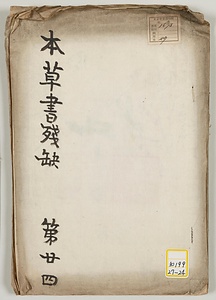 本草書殘缺 第廿四
特1199
27-24